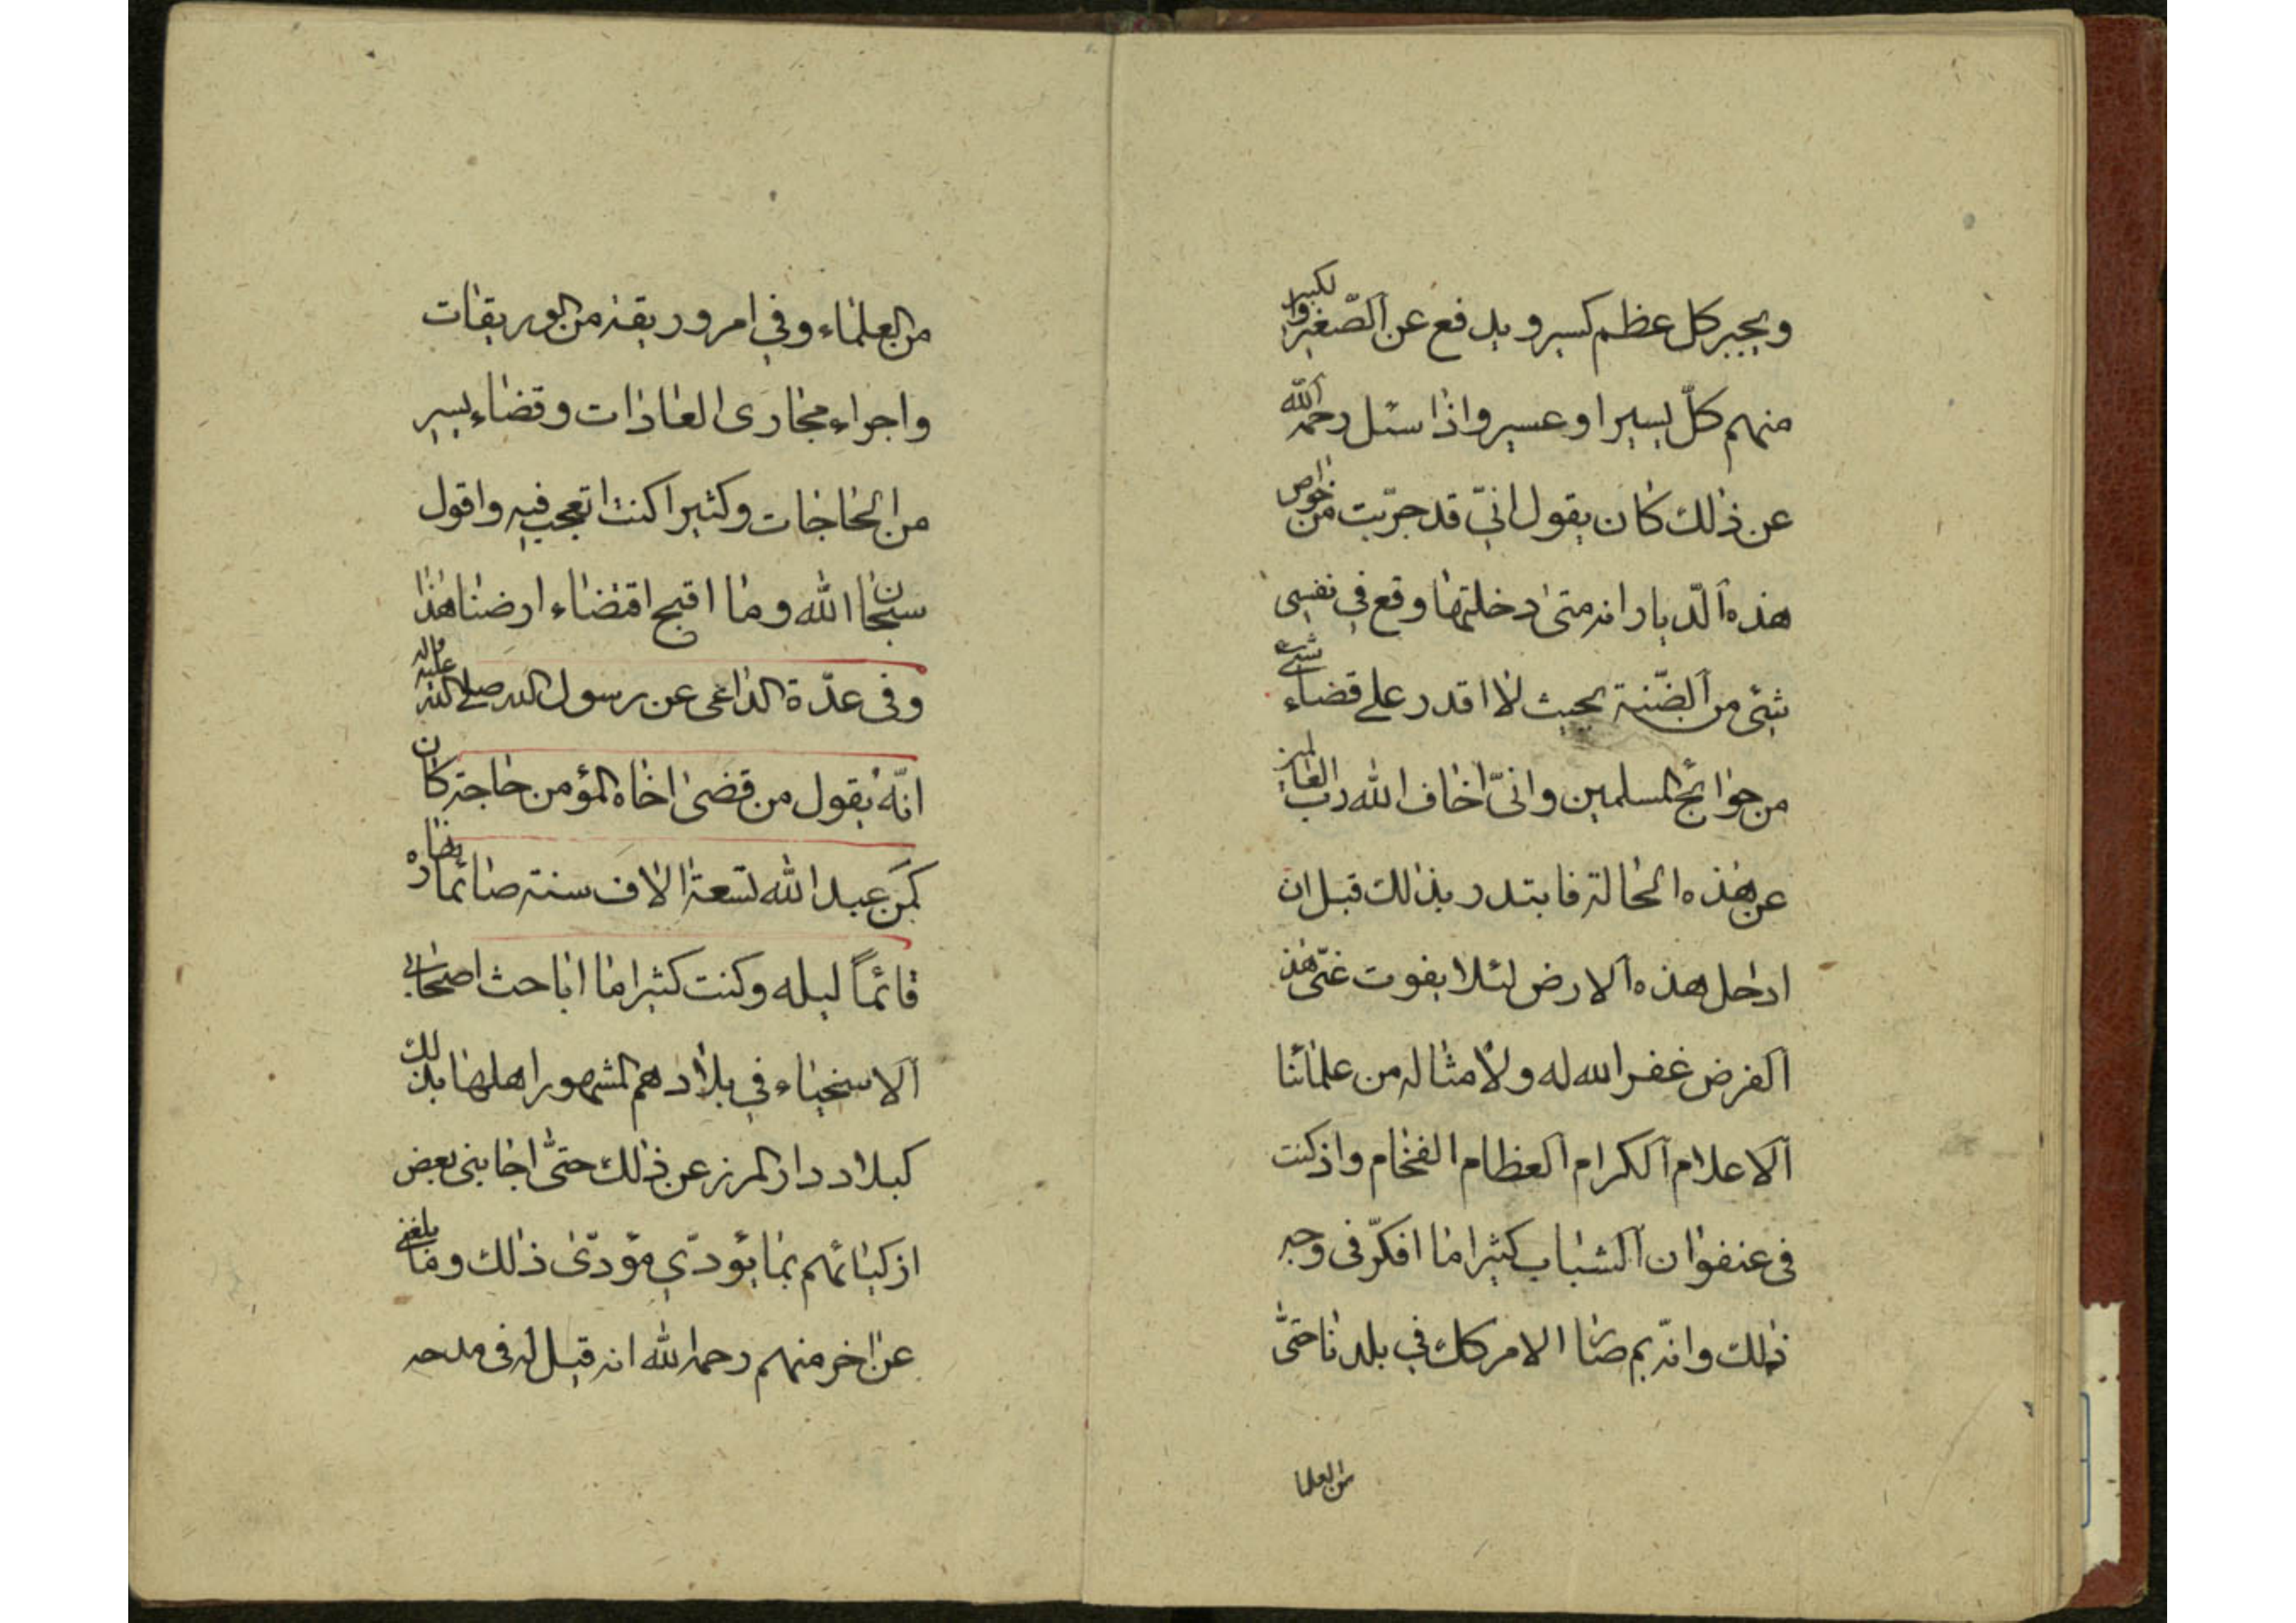 ويجبر كل عظم كسير ويدفع عن الصّغير والكبير
منهم كلّ يسير او عسير واذا سئل رحمه الله
عن ذلك كان يقول انيّ قد جرّبت من خواص
هذه الدّيار انه متى دخلتها وقع في نفسي
شئ من الضّنة بحيث لا اقدر على قضاء شئ
من حوائج المسلمين وانىّ اخاف الله رب العالمين
عن هذه الحالة فابتدر بذلك قبل ان
ادخل هذه الارض لئلا يفوت عنّى هذ
الفرض غفر الله له ولامثاله من علمائنا
الاعلام الكرام العظام الفخام واذ كنت
فى عنفوان الشباب كثيرا ما افكّر فى وجه
ذلك وانّه بم صار الامر كك في بلدنا حتّى
من العلما
من العلماء وفي امر وريقة من الوريقات
واجراء مجارى العادات وقضاء يسير
من الحاجات وكثيرا كنت اتعجب فيه واقول
سبحان الله وما اقبح اقتضاء ارضنا هذا
وفى عدّة الداعى عن رسول الله صلى الله عليه واله
انّه يقول من قضى اخاه المؤمن حاجة كان
كمن عبد الله تسعة الاف سنة صائما نهاره
قائماً ليله وكنت كثيرا ما اباحث اصحابى
الاسخياء في بلادهم المشهور اهلها بذلك
كبلاد دار المرز عن ذلك حتىّ اجابنى بعض
ازكيائهم بما يؤدّي مؤدّى ذلك وما بلغنى
عن اخر منهم رحمه الله انه قيل له فى مدحه